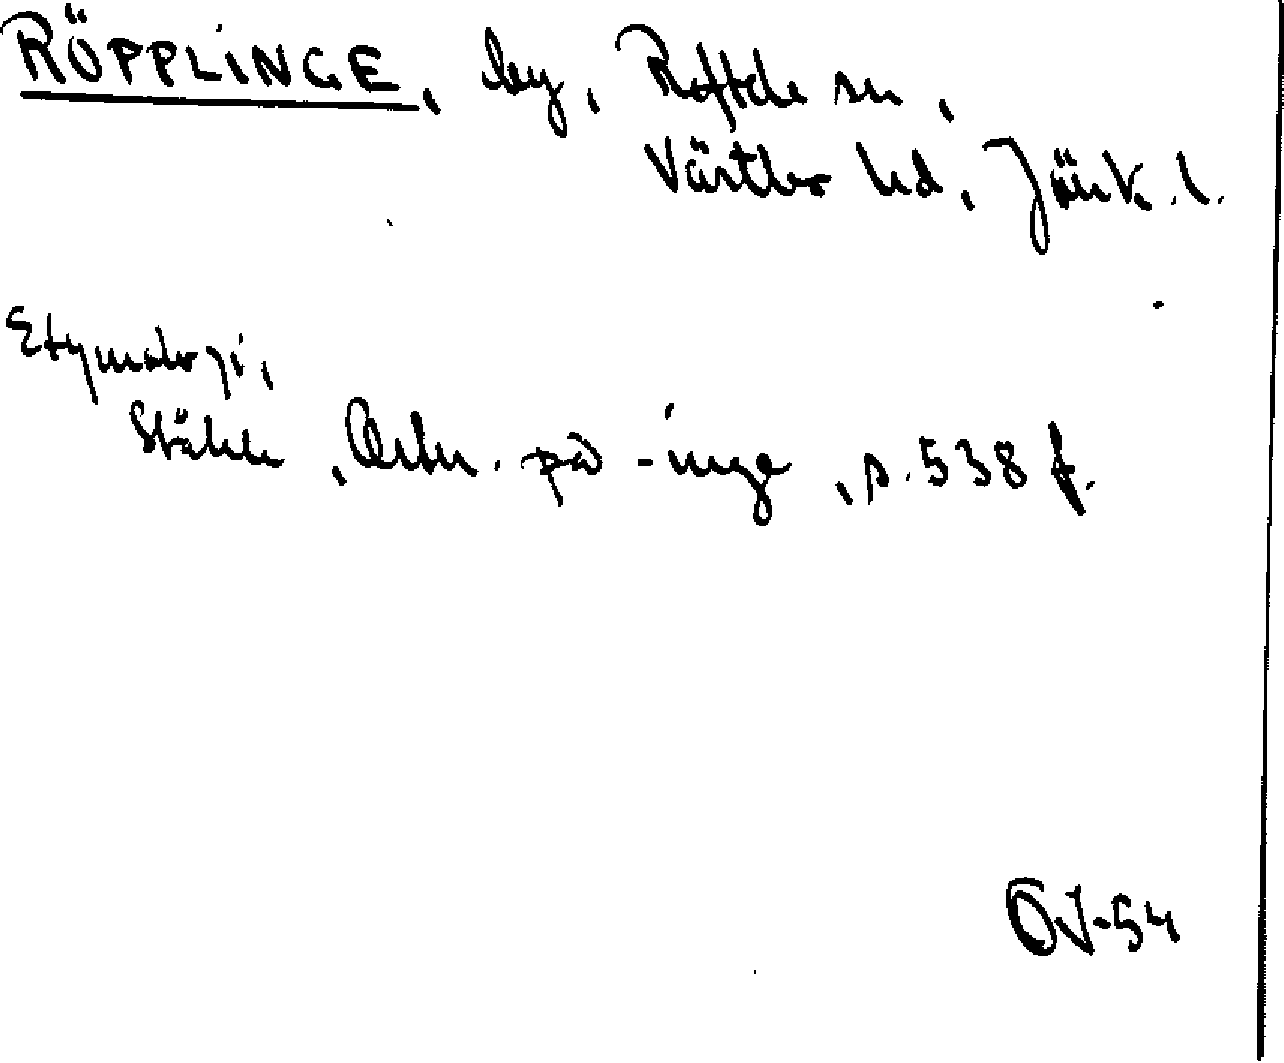 RÖPPLINGE, by, Roftele sn,
Västbo hd, Jönk. l.
Etymologi,
Ståhle, Ortn. på -inge, s. 538 f.
ÖJ-54